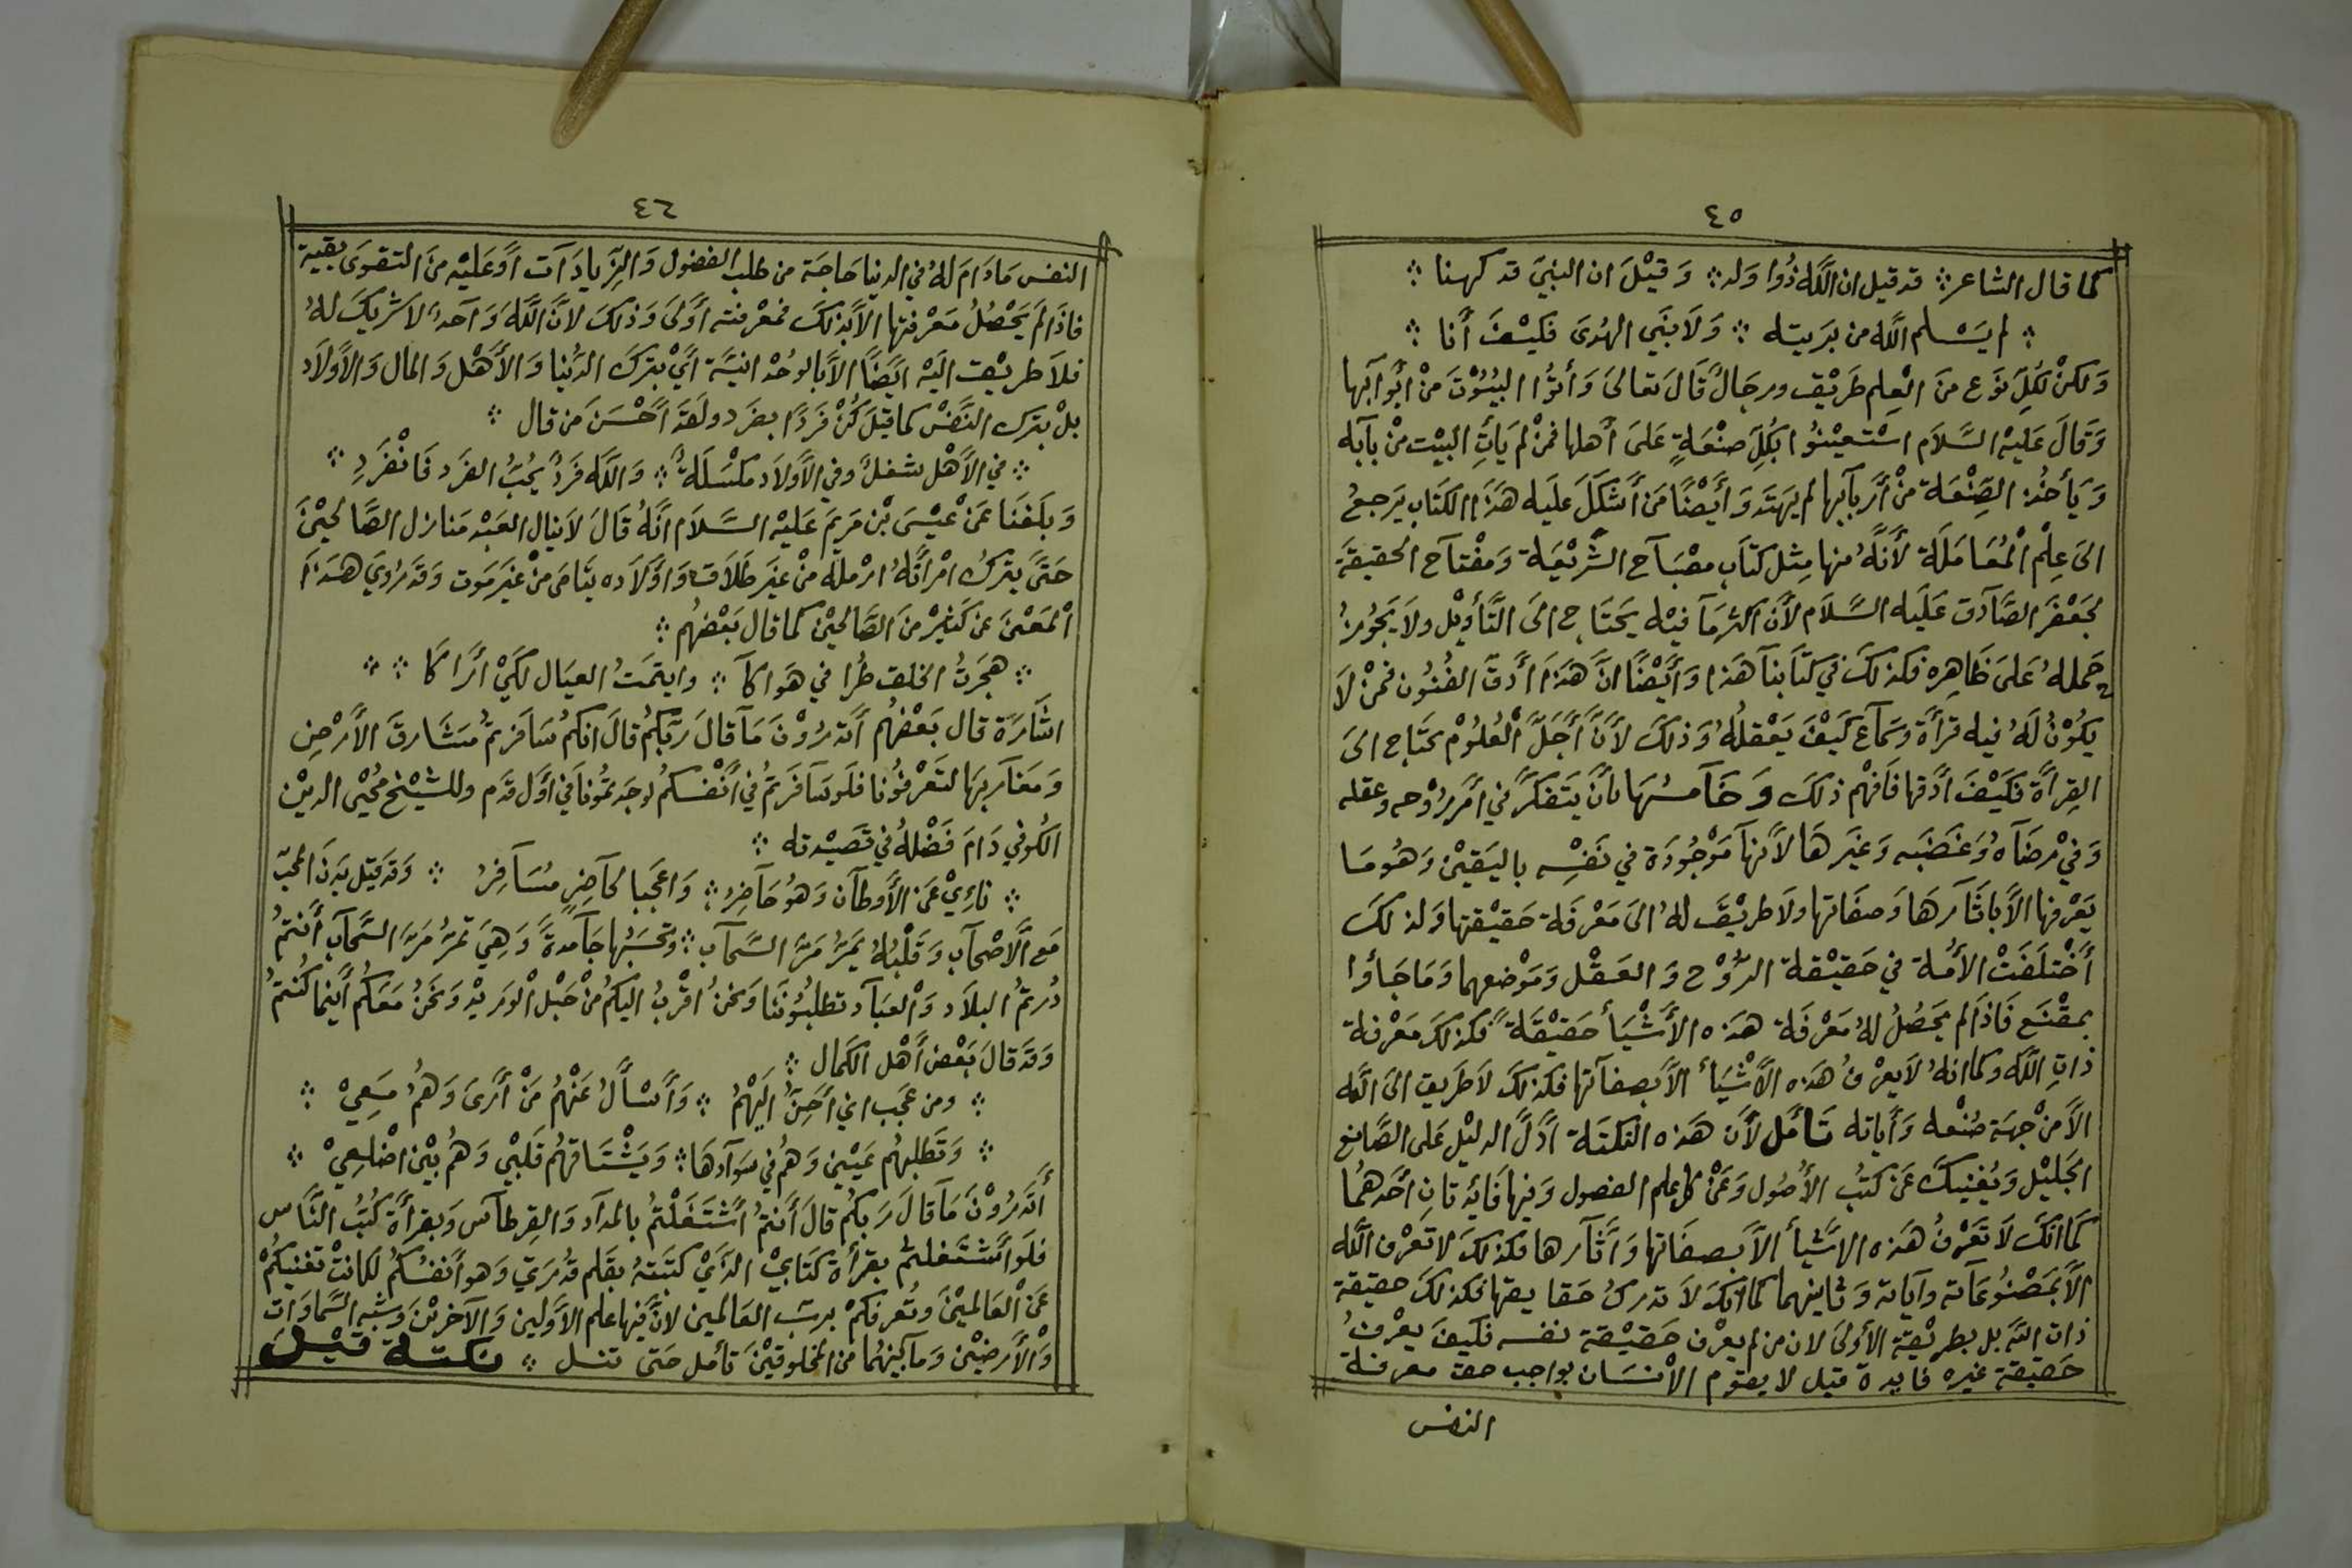 ٤٥
كما قال الشاعر ⁘ قد قيل ان اللَّه ذُوا وَلد ⁘ وَقيْلَ ان النبيَ قد كهنا ⁘
⁘ لم يَسْلم اللَّه من بَريته ⁘ وَلَا بنَي الهُدىَ فكيْفَ أَنا ⁘
وَلكنْ لكُلِّ نَوَع منَ الْعِلم طَرِيْق ورجَالٌ قَالَ تعالىَ وَأتوُا البيُوُتَ منْ أبْوَابَها
وَقالَ عَليهْ السَّلَام اسْتعيْنوُا بكُلِّ صنْعَةٍ عَلىَ أهلها فمنْ لم يَأتِ البيْت منْ بآبه
وَيَأخُذ الصِّنْعَة منْ أرَبآبها لم يهتَد وَأيَضْاً مَن أشكلَ عليَه هَذَا الكتاَب يَرجعُ
الىَ عِلْم الْمُعَامَلَة لأَنهَُ منها مِثل كتَاَب مصْبَآح الشَّريْعَة وَمفْتآح الحقيقَة
لجَعْفَر الصَّآدق عَليَه السَّلَام لأَنَ اكثرمَآ فيْه يحتَاج الىَ التَّأويْل ولاَ يَجوُزُ
حَملهُ عَلىَ ظَاهِرهِ فكذلكَ في كتاَبنآ هَذا وَأيَضْاً انَّ هَذَا أدَقَّ الفُنُون فمنْ لاَ
يكوُنُ لَهُ فيه قرأَة وسَماَع كيَفْ يَعْقلُهُ وَذلكَ لأَنَّ أَجَلَّ الْعُلُوْم تحتَاج الىَ
القِرأَة فكَيْفَ أدَقها فَافهْم ذلكَ وَخَآمسُهَا بأنَ يتَفكرَّ في أمَر رُوْحه وعقله
وَفيْ رضَآهُ وَغضَبَه وَغيَرهَا لأنَهآ مَوْجُودَة في نَفْسِه باليَقيْن وَهُومَا
يَعْرفها الاَّ بآثَارهَا وَصفَاتها ولاَ طَريْقَ لهُ الىَ مَعْرفَة حَقيْقتها وَلذلكَ
أَخْتلَفَتْ الأمُة في حَقيْقة الرُّوْح وَالعَقْل وَمَوْضعهما وَمَا جَاؤا
بمقْنَع فَاذَا لم يَحصُلُ لهُ مَعْرفَة هَذه الأَشْيَأ حَقيْقَة ً فكذلكَ مَعْرفة
ذاتِ اللَّه وكما انهُ لاَيعرْفُ هَذه الأَشْيَأ الاَّ بَصفآتها فكذلكَ لاَ طَريق الىَ اللَّه
الاَّ منْ جهَة صُنْعه وَأياته تَأمَل لأَنَ هَذه النكتَة أدَلَّ الدليْل عَلى الصَّانع
الجَليْل وَيُغنيكَ عَن كتبُ الأُصُول وَعَنْ كل علم الفصول وَفيها فَائدتانِ أحَدهمُا
كَمَا انكَ لاَ تَعْرفُ هَذه الاشَيأ الاَّ بَصفَاتها وَأثآرها فكذلكَ لا تعْرف اللَّه
الاَّ بمَصْنوُعَآته وآياته وَثانيهما كما انكَ لاَ تدركُ حَقايقها فكذلكَ حقيقة
ذات اللَّه بل بطريْقة الأولىَ لان من لم يعْرف حَقيْقة نفسه فكيفَ يعْرفُ
حَقيقة غيره فايدة قيل لا يقوم الاْنسَان بواجب حق معرفة
النفس
٤٦
النفس مَادَامَ لهُ في الدنيا حَاجَة من طلب الفضول وَالزِّيادَآت أوَ عَليْه منَ التقوىَ بقية
فاذَا لم يَحْصُلُ مَعْرفتها الاَّ بذلكَ فمعْرفته أوَلىَ وَذلكَ لانَّ اللَّهَ وَآحَدٌ لاَ شَريكَ لهُ
فلاَ طريْق اليَه ايَضاً الاَّ بالوَحْدَانيَّة أيْ بترْكَ الدُّنيا وَالأَهْل وَالمال وَالأَولاَد
بلْ بترك النَّفسْ كما قيلَ كُنْ فَردًا بفرَد ولَقدَ أحْسَنَ من قال ⁘
⁘ في الأَهْل شغلٌ وفي الأَولاَد مكْسَلَةٌ ⁘ وَاللَّه فَردٌ يُحبُّ الفرَد فَانْفَردِ ⁘
وَبلَغنَا عَنْ عيْسىَ بنْ مَريمَ عَليْه السَّلاَم انَّهُ قَالَ لاَ ينال العَبْد مَنازل الصَّالحيْنَ
حَتىَ يتركُ امْرأتَهُ ارْملة منْ غيرَ طَلاَق وَاوَلاَده يتَامىَ منْ غيَر مَوت وَقدَ رُويَ هَذَا
اْلمَعْنىَ عَن كَثيْر منَ الصَّالحيْن كما قال بَعْضهُم ⁘
⁘ هجَرتُ الخلق طُرا في هَواكآَ ⁘ وايتمَتُ العيَال لكَيْ أرَاكاَ ⁘ ⁘
اشَارَة قال بَعْضهُم أتَدرُوْنَ مَا قالَ رَبّكمُ قالَ انكمُ سَافرتمُ مشَارقَ الأرَضِ
وَمَغَاربهَا لتَعْرفُونا فلَو سَآفَرتمُ في أَنْفسكمُ لوجَدتمُونا في أوَل قدَم وللشيْخ مُحْيي الديْن
الكوُفي دَامَ فضْلهُ في قصَيْدته ⁘
⁘ نائيْ عَن الأَوطآن وَهوُ حَآضرُ ⁘ وَاعجَبا لحآضِر مسُآفرُ ⁘ وَقدَ قيْل بدَن المحبّ
مَع الأَصْحآب وَقلْبُهُ يمَرُّ مَرَّ السَّحآب ⁘ وتحسَبُها جَآمدةً وَهيَ تمرُّ مَرَّ السَّحآب أنتمُ
دُرتمُ البلاَد وَالْعبَآد تطلبُوُننَا وَنحنُ اقرْبُ اليكمُ منْ حَبْل الْوَريْد وَنحَنُ مَعَكمُ أينما كُنتمُ
وَقدَ قالَ بعْض أهْل الكَمال ⁘
⁘ ومن عَجَب اني أحِنُّ اليَهْمُ ⁘ وَأَسْألُ عَنْهُم مَنْ أرَىَ وَهُمُ مَعِيْ ⁘
⁘ وَتَطلبهُم عَيْني وَهمُ في سَوآدهَا ⁘ وَيَشْتَاقهُم قلَبْي وَهُم بيْن اضْلعِيْ ⁘
أَتدَرُوْنَ مَآ قالَ رَبكُم قالَ أنتمُ أشْتَغَلْتمُ بالمدَآد وَالقِرطآس وَبقرأة كُتُبُ النَّاس
فلَو أشْتَغلتمُ بقرأة كتَابيْ الذَيْ كتبَتهُ بقَلم قدُرَتيَ وَهو أنفسُكمُ لكانتْ تغنيكمُْ
عَن الْعَالميْنَ وتُعرفكمْ برَبّ العَالمين لانَّ فيها علم الأَوَّلين وَالآخريْنَ وَشبه السَّماوَات
وَالأَرضيْن وَمآ بيْنهُما من المخلوقيْنَ تأمل حَتى تنل ⁘ نكتة قيْلَ